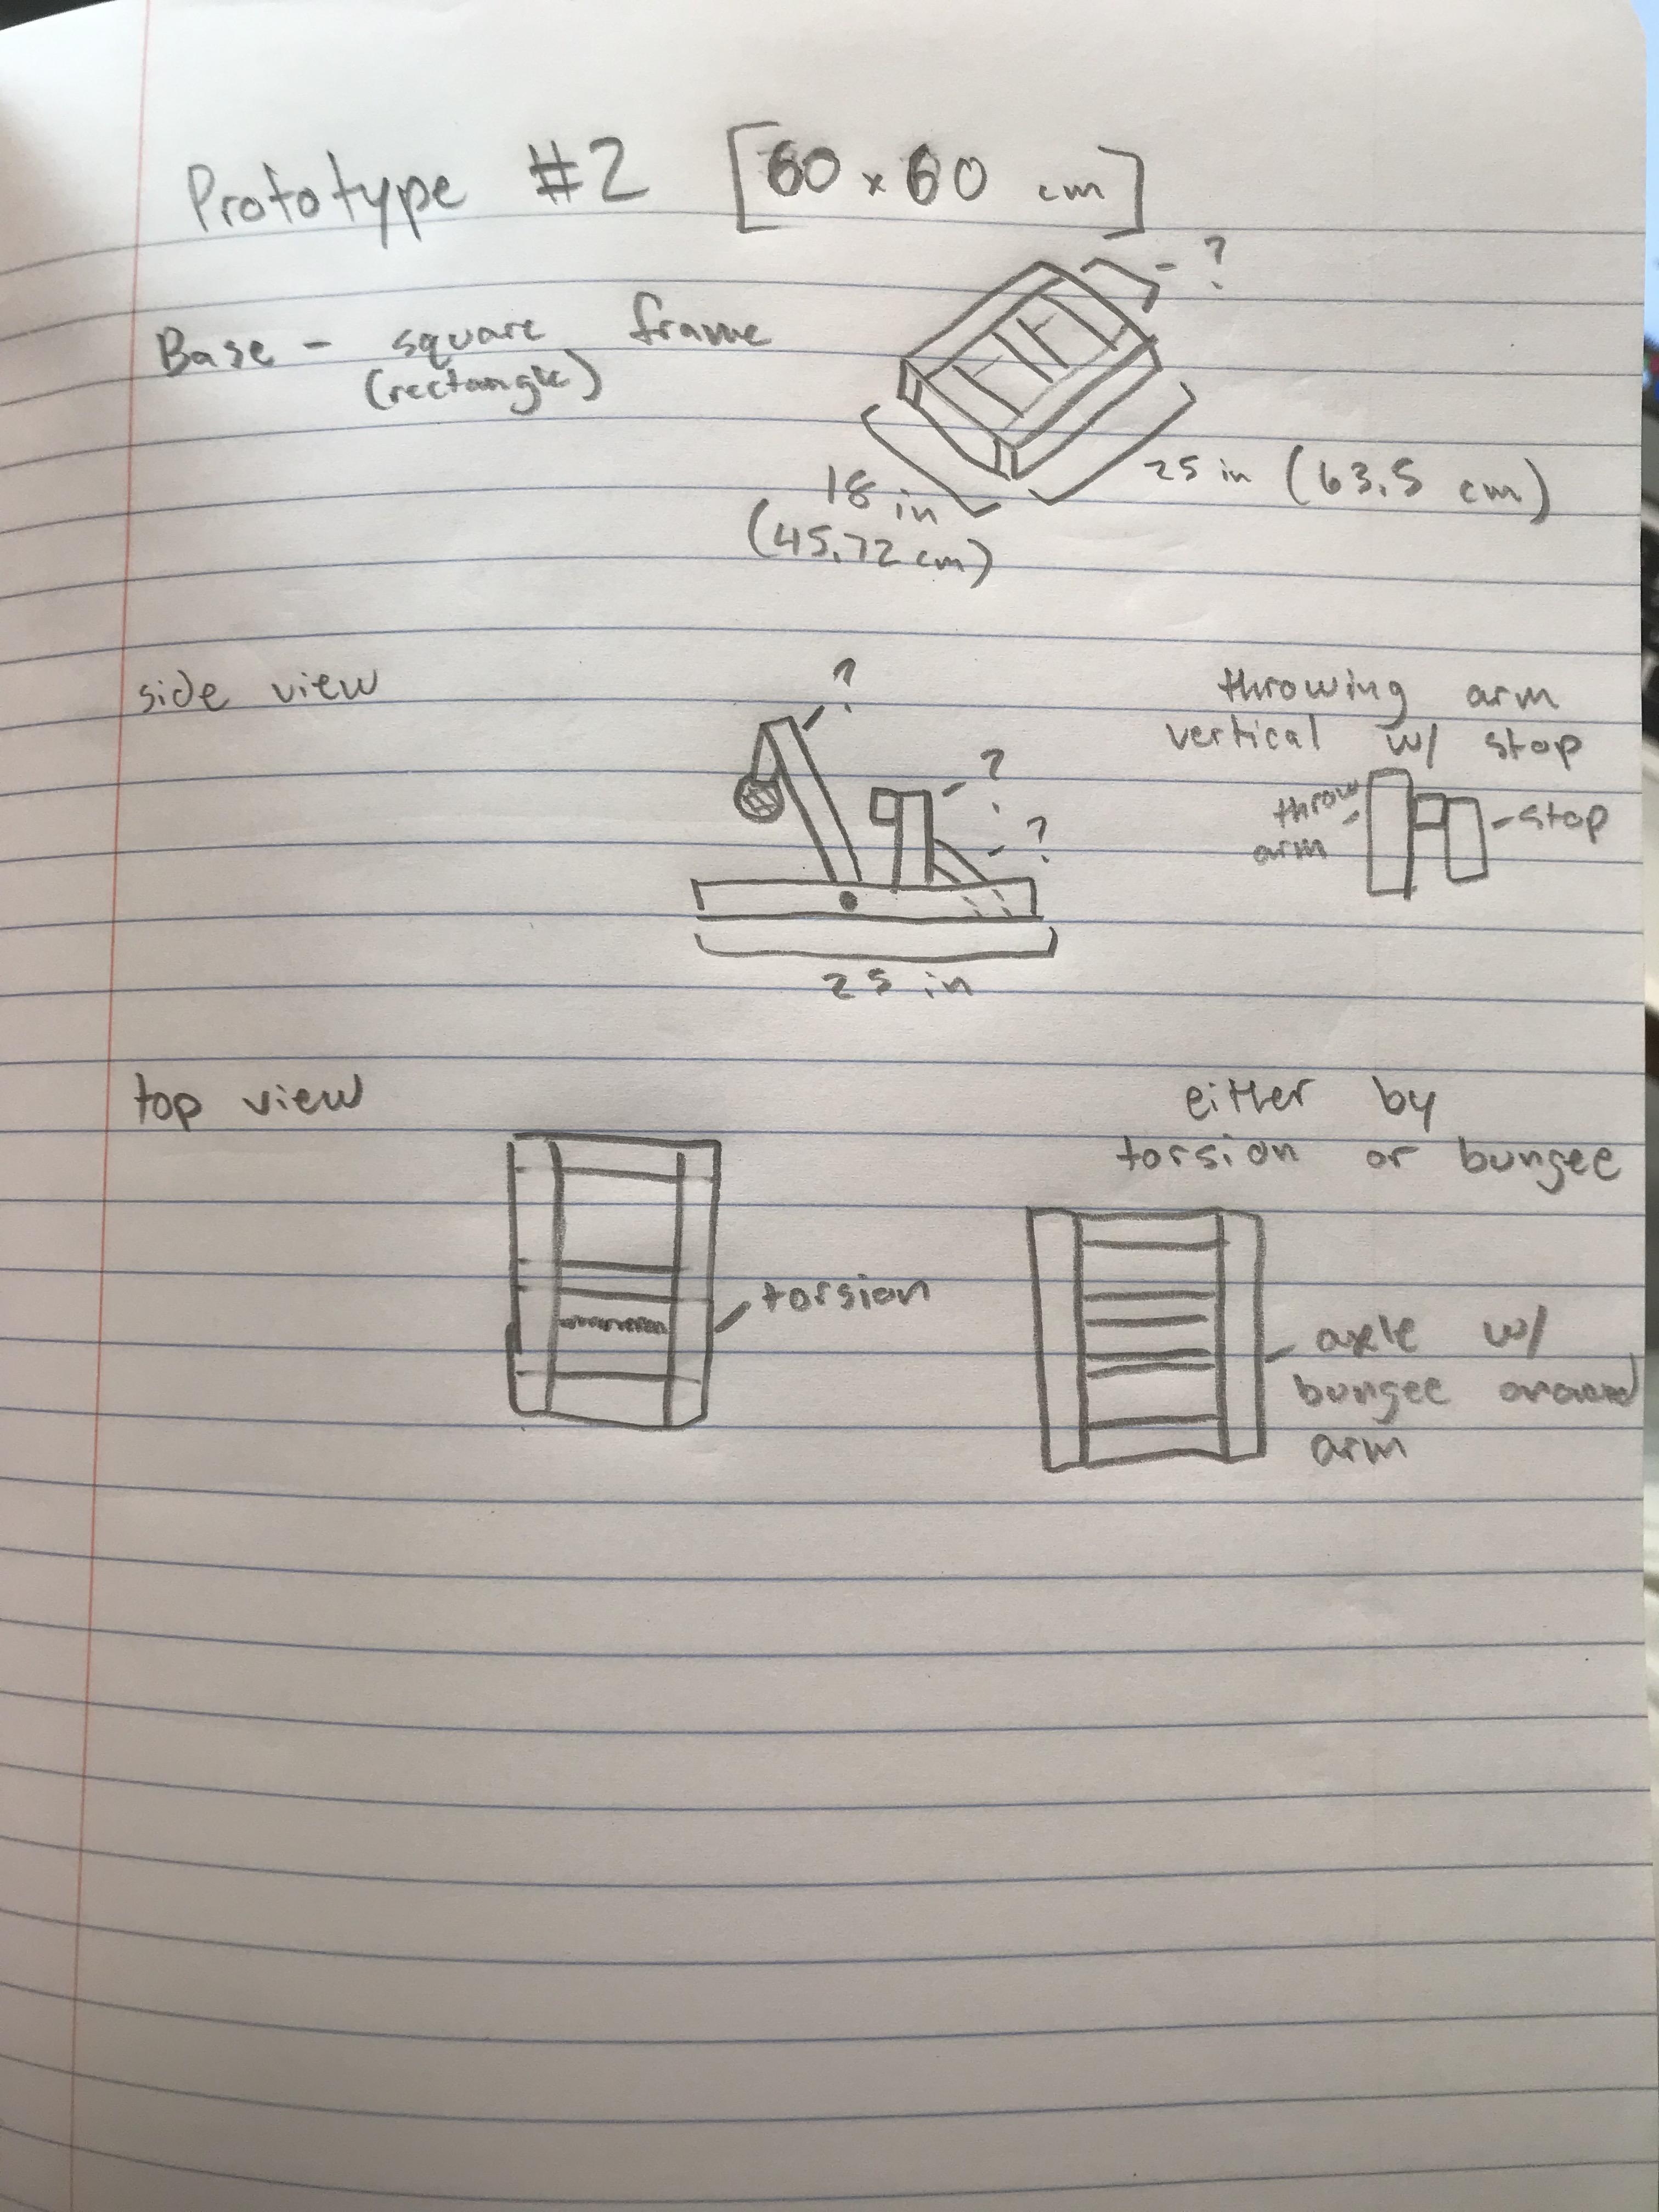 Prototype #2 [60 x 60 cm]
- ?
Base - square frame
(rectangle)
25 in (63.5 cm)
18 in
(45.72 cm)
side view
?
throwing arm
vertical w/ stop
- ?
- ?
throw
arm
- stop
25 in
top view
either by
torsion or bungee
torsion
axle w/
bungee around
arm